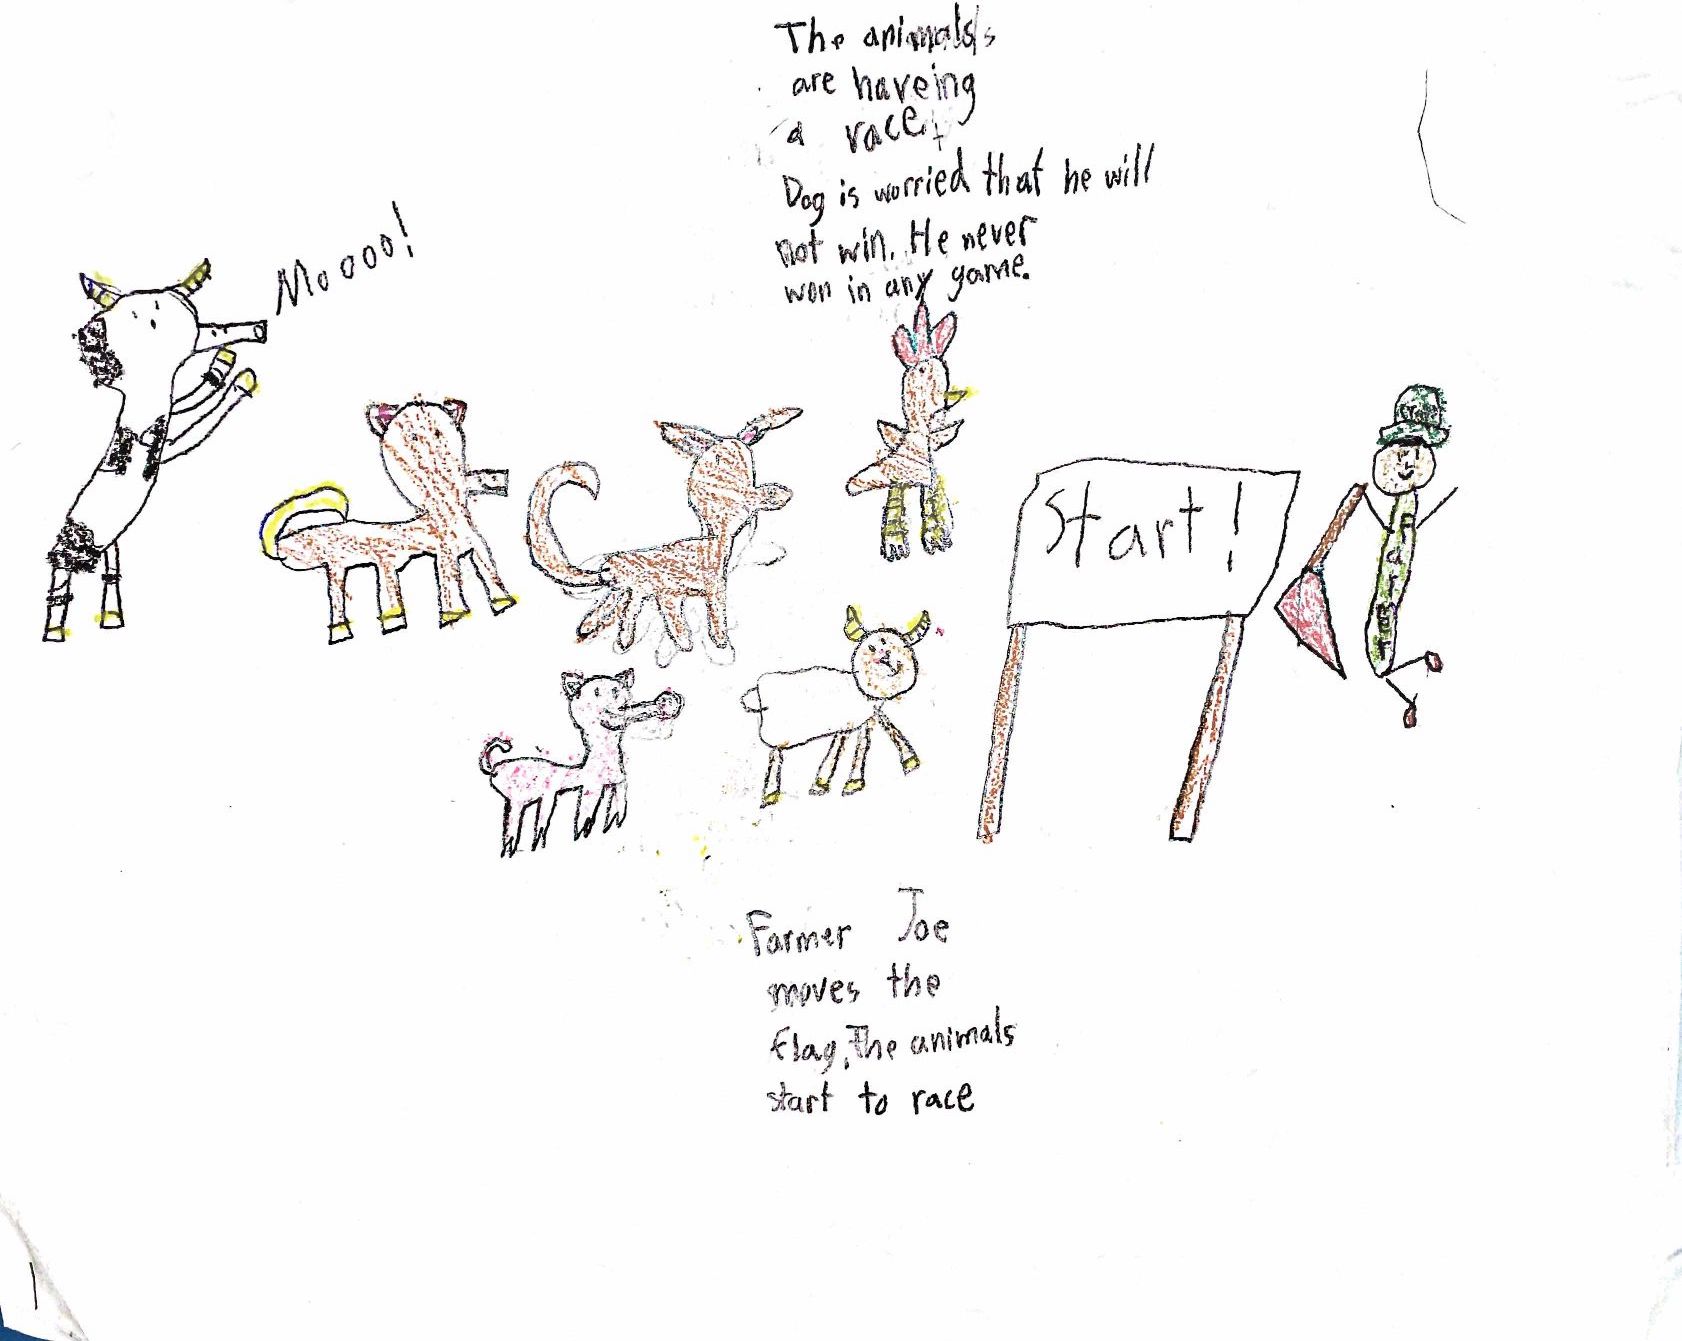 The animals
are haveing
a race.
Dog is worried that he will
not win. He never
won in any game.
Moooo!
Start!
Farmer
Farmer Joe
moves the
flag, The animals
start to race
1